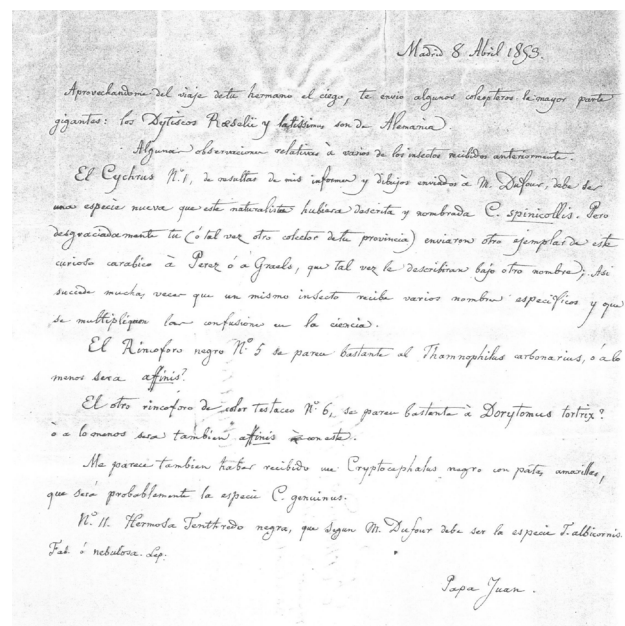 Madrid 8 Abril 1853.
Aprovechandome del viaje de tu hermano el ciego, te envio algunos coleopteros la mayor parte
gigantes: los Dytiscos Rœselii y latissimus son de Alemania
Alguna observaciones relativas à varios de los insectos recibidos anteriormente.
El Cychrus N.º 1, de resultas de mis informes y dibujos enviados à M. Dufour, debe ser
una especie nueva que este naturalista hubiera descrita y nombrada C. spinicollis. Pero
desgraciadamente tu (ó tal vez otro colector de tu provincia) enviaron otro ejemplar de este
curioso carabico à Perez ó à Graels, que tal vez le describiran bajo otro nombre; Asi
sucede muchas veces que un mismo insecto recibe varios nombres especificos y que
se multipliquen las confusione en la ciencia.
El Rincoforo negro N.º 5 se parece bastante al Thamnophilus carbonarius, ó à lo
menos sera affinis?
El otro rincoforo de color testaceo N.º 6, se parece bastante à Dorytomus tortrix?
ò a lo menos sera tambien affinis con este.
Me parece tambien haber recibido un Cryptocephalus negro con patas amarillas,
que será probablemente la especie C. genuinus.
N.º 11. Hermosa Tenthredo negra, que segun M. Dufour debe ser la especie T. albicornis.
Fab. ó nebulosa. Lep.
Papa Juan.